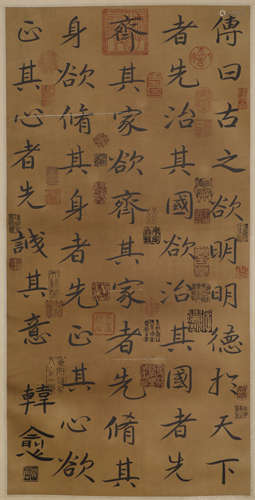 傳曰古之欲明明德於天下
者先治其國欲治其國者先
齊其家欲齊其家者先脩其
身欲脩其身者先正其心欲
正其心者先誠其意
韓愈